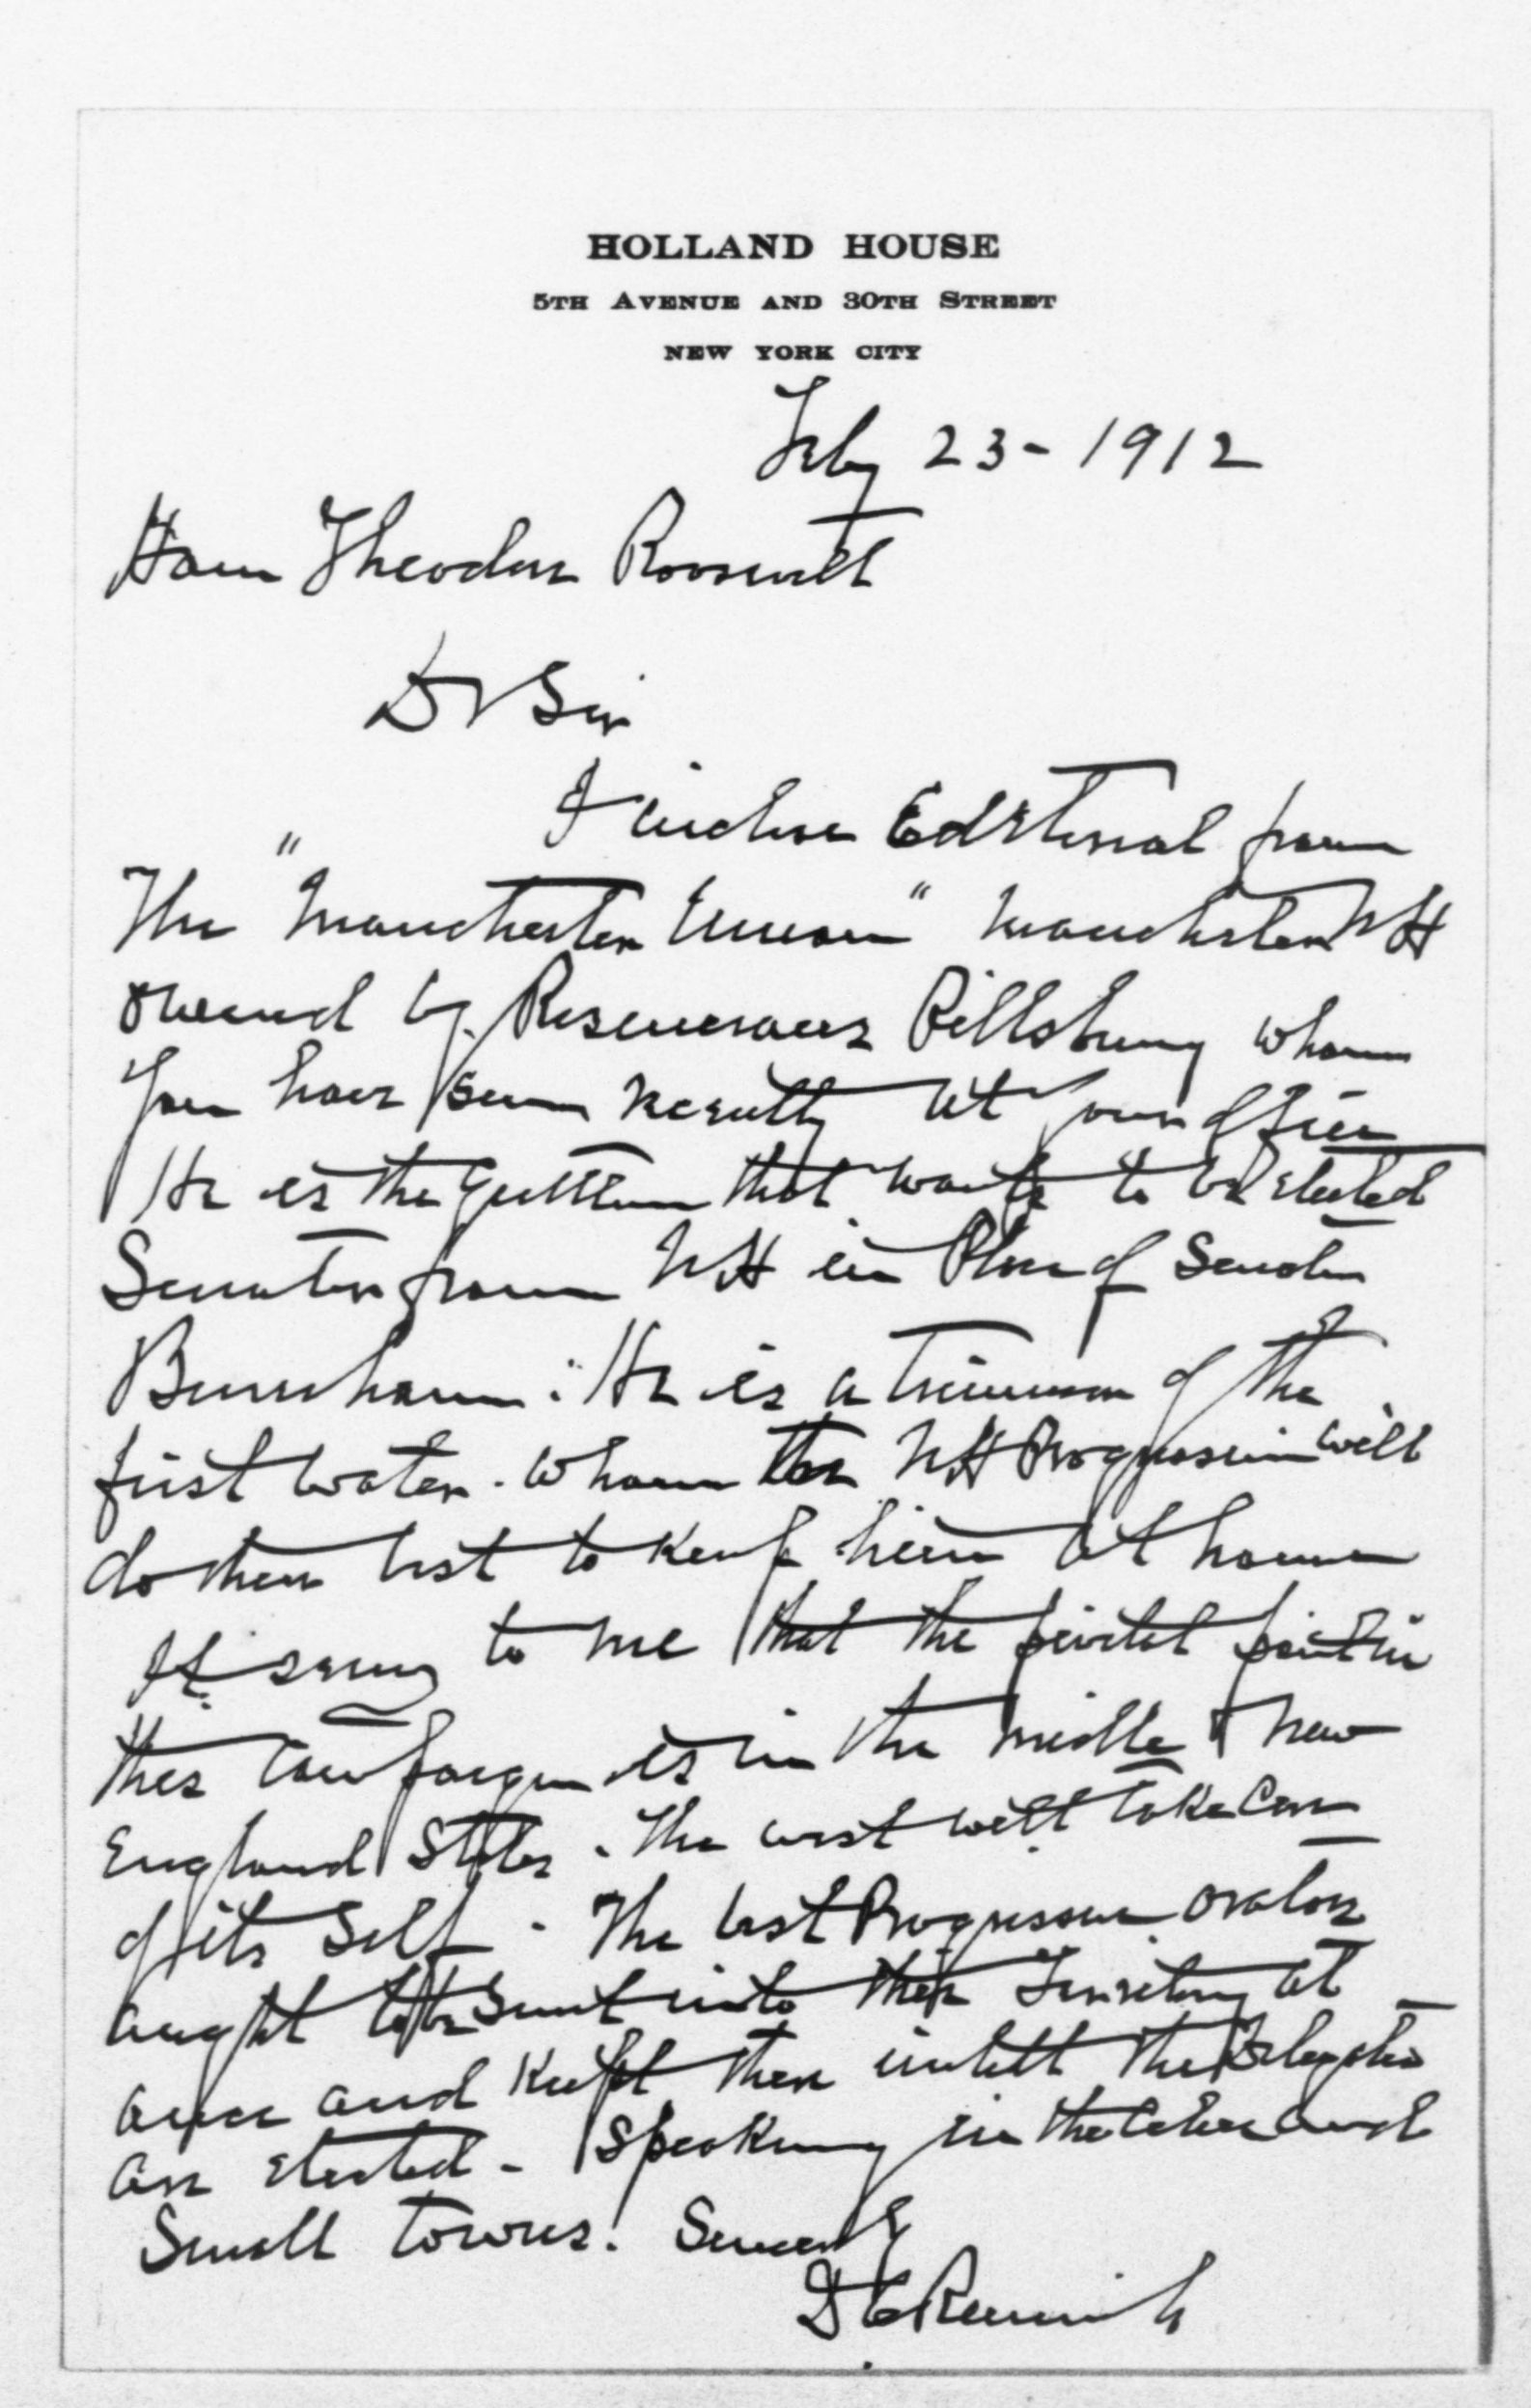 HOLLAND HOUSE
5TH AVENUE AND 30TH STREET
NEW YORK CITY
Feby 23 - 1912
Hon Theodore Roosevelt
Dr Sir
I inclose Editorial from
The "Manchester Union" Manchester NH
owned by Rosecrans Pillsbury whom
you have seen recently at your office
He is the gentleman that wants to be elected
Senator from NH in Place of Senator
Burnham. He is a trimmer of the
first water. Whom the NH Progressives will
do their best to keep him at home
It seems to me that the pivotal point in
this campaign is in the middle & New
England States. The west will take care
of its self - The best Progressive orators
aught to be sent into this Territory at
once and kept there untill the Delegates
are elected - Speaking in the cities and
small towns. Sincerely
D C Remich